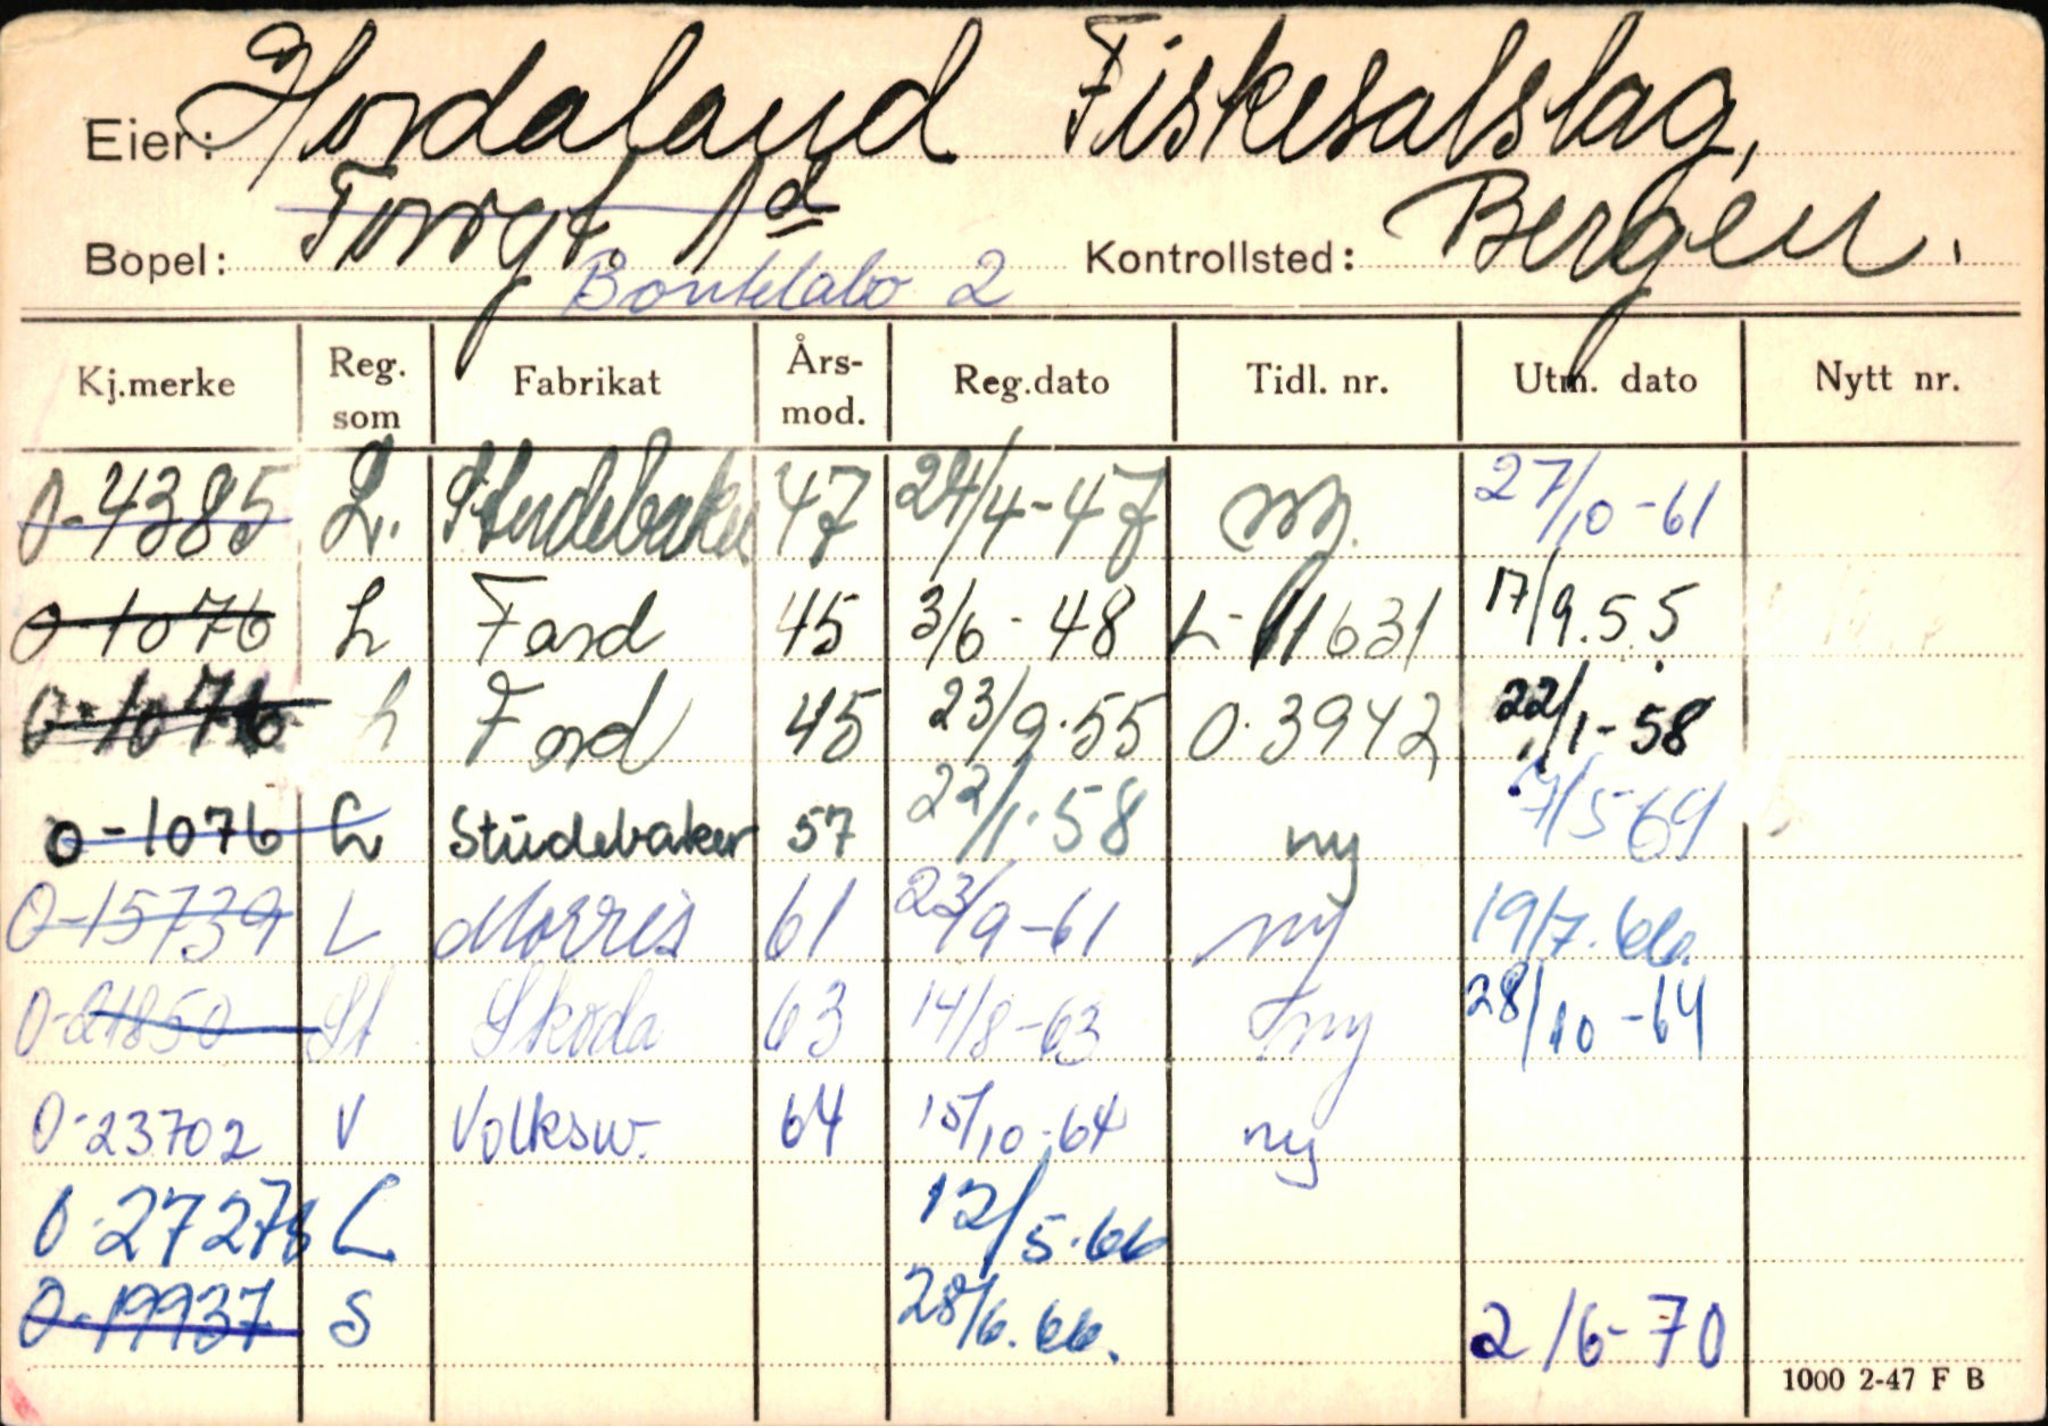 Eier: Hordaland Fiskesalslag,
Bopel: Torvgt. 1d Kontrollsted: Bergen.
Bontelabo 2
Kj.merke Reg. som Fabrikat Års-mod. Reg.dato Tidl. nr. Utm. dato Nytt nr.
O-4385 L. Studebaker 47 24/4-47 ny. 27/10-61
O-1076 L Ford 45 3/6-48 L-11631 17/9.55
O-1076 L Ford 45 23/9.55 O.3942 22/1-58
O-1076 L Studebaker 57 22/1.58 ny 7/5 69
O-15739 L Morris 61 23/9-61 ny 19/7.66.
O-21850 St Skoda 63 14/8-63 ny 28/10-64
O-23702 V Volksw. 64 15/10-64 ny
O-27278 L 12/5.66
O-19937 S 28/6.66. 2/6-70
1000 2-47 F B